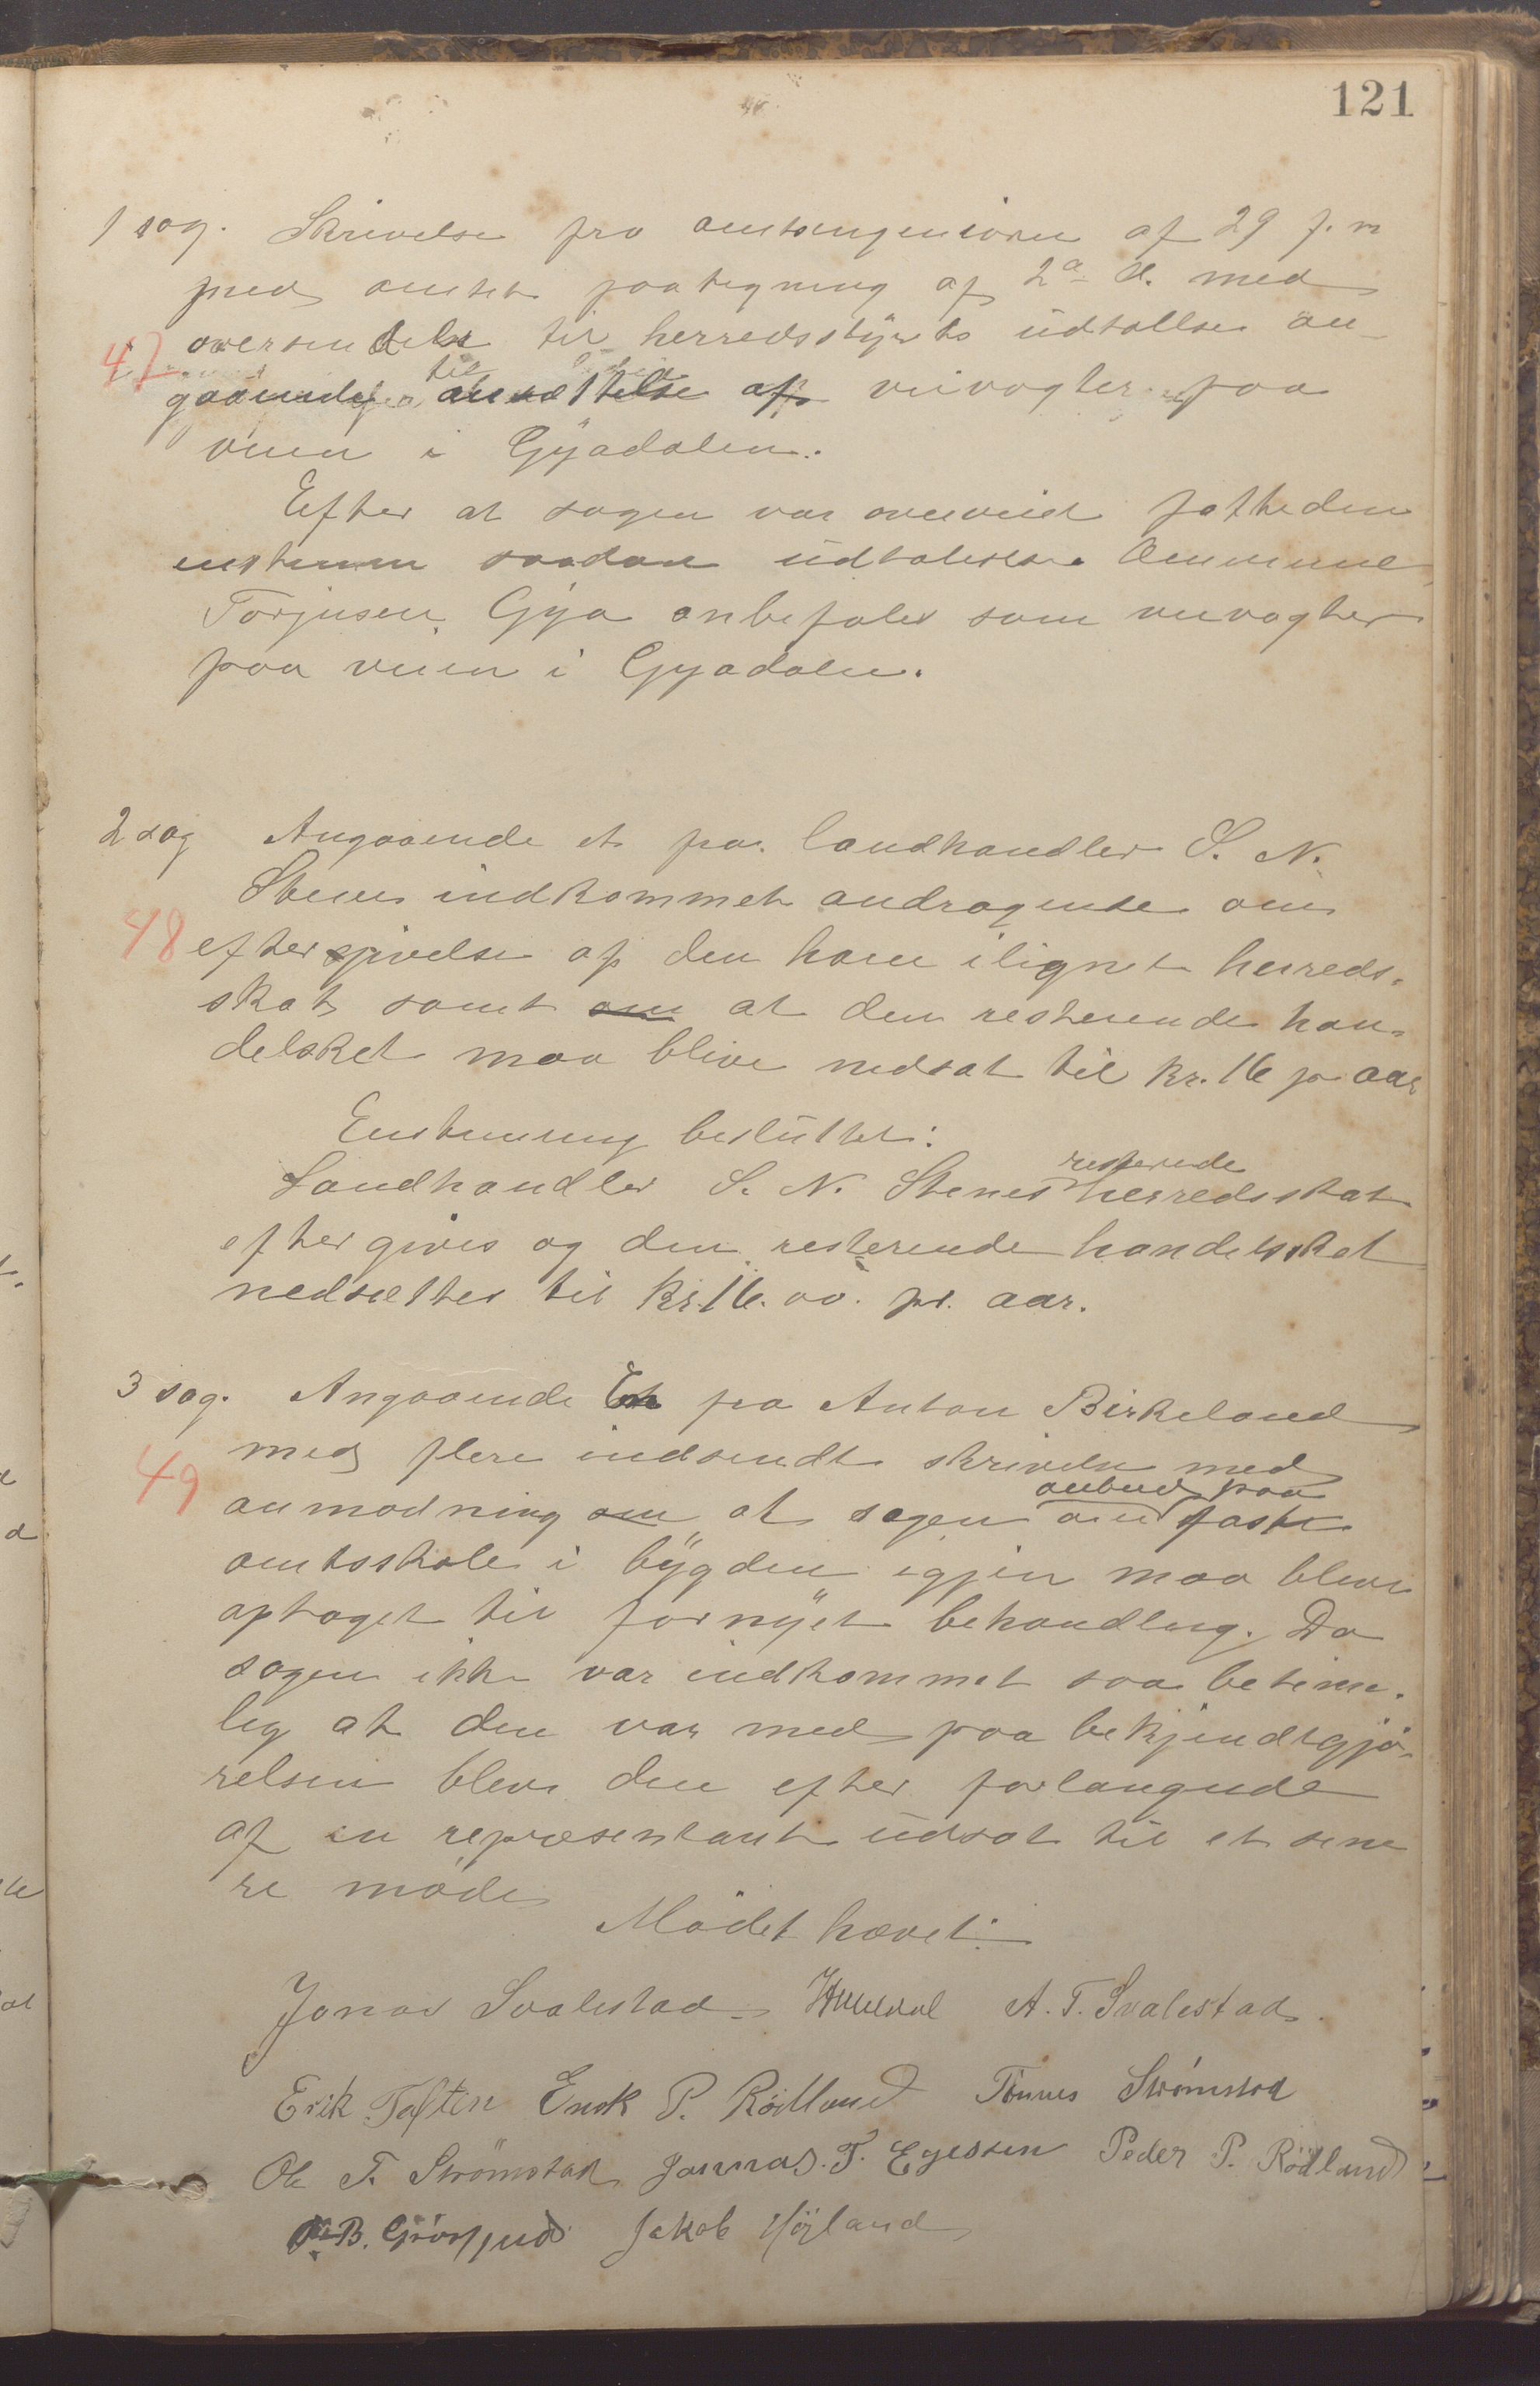 121
1 sag. Skrivelse fra amtsingeniøren af 29 f. m
med amtets paategning af 2 d. med
oversendelse til herredsstyrets udtallelse an-
47
til
gaaende ansættelse af veivogter paa
veien i Gÿadalen.
Efter at sagen var overveiet fattedes
enstemm saadan udtalelse. Ammund
Torjusen Gya anbefales som veivogter
paa veien i Gyadalen.
2 sag Angaaende et fra landhandler S. N.
Stenes indkommet andragende om
48 eftergivelse af den ham ilignet herreds-
skat samt om at den resterende han-
delsskat maa blive nedsat til kr. 16 pr aar
Enstemmig besluttet:
resterende
Landhandler S. N. Stenes herredsskat
eftergives og den resterende handelsskat
nedsættes til kr. 16.00. pr. aar.
3 sag. Angaaende En fra Anton Birkeland
med flere indsendt skrivelse med
49
anbud paa
anmodning om at sagen om faste
amtsskole i bÿgden igjen maa blive
optaget til fornÿet behandling. Da
sagen ikke var indkommet saa betime-
lig at den var med paa bekjendtgjö-
relsen blev den efter forlangende
af en repræsentant udsat til et sene
re möde
Mödet hævet:
Jonas Svalestad A. T. Svalestad
Erik Taftin Enok P. Rödland Tönnes Strömstad
Ole T. Strömstad Jonnas. T. Egessen Peder P. Rödland
B. Grösfjeld Jakob Höjland